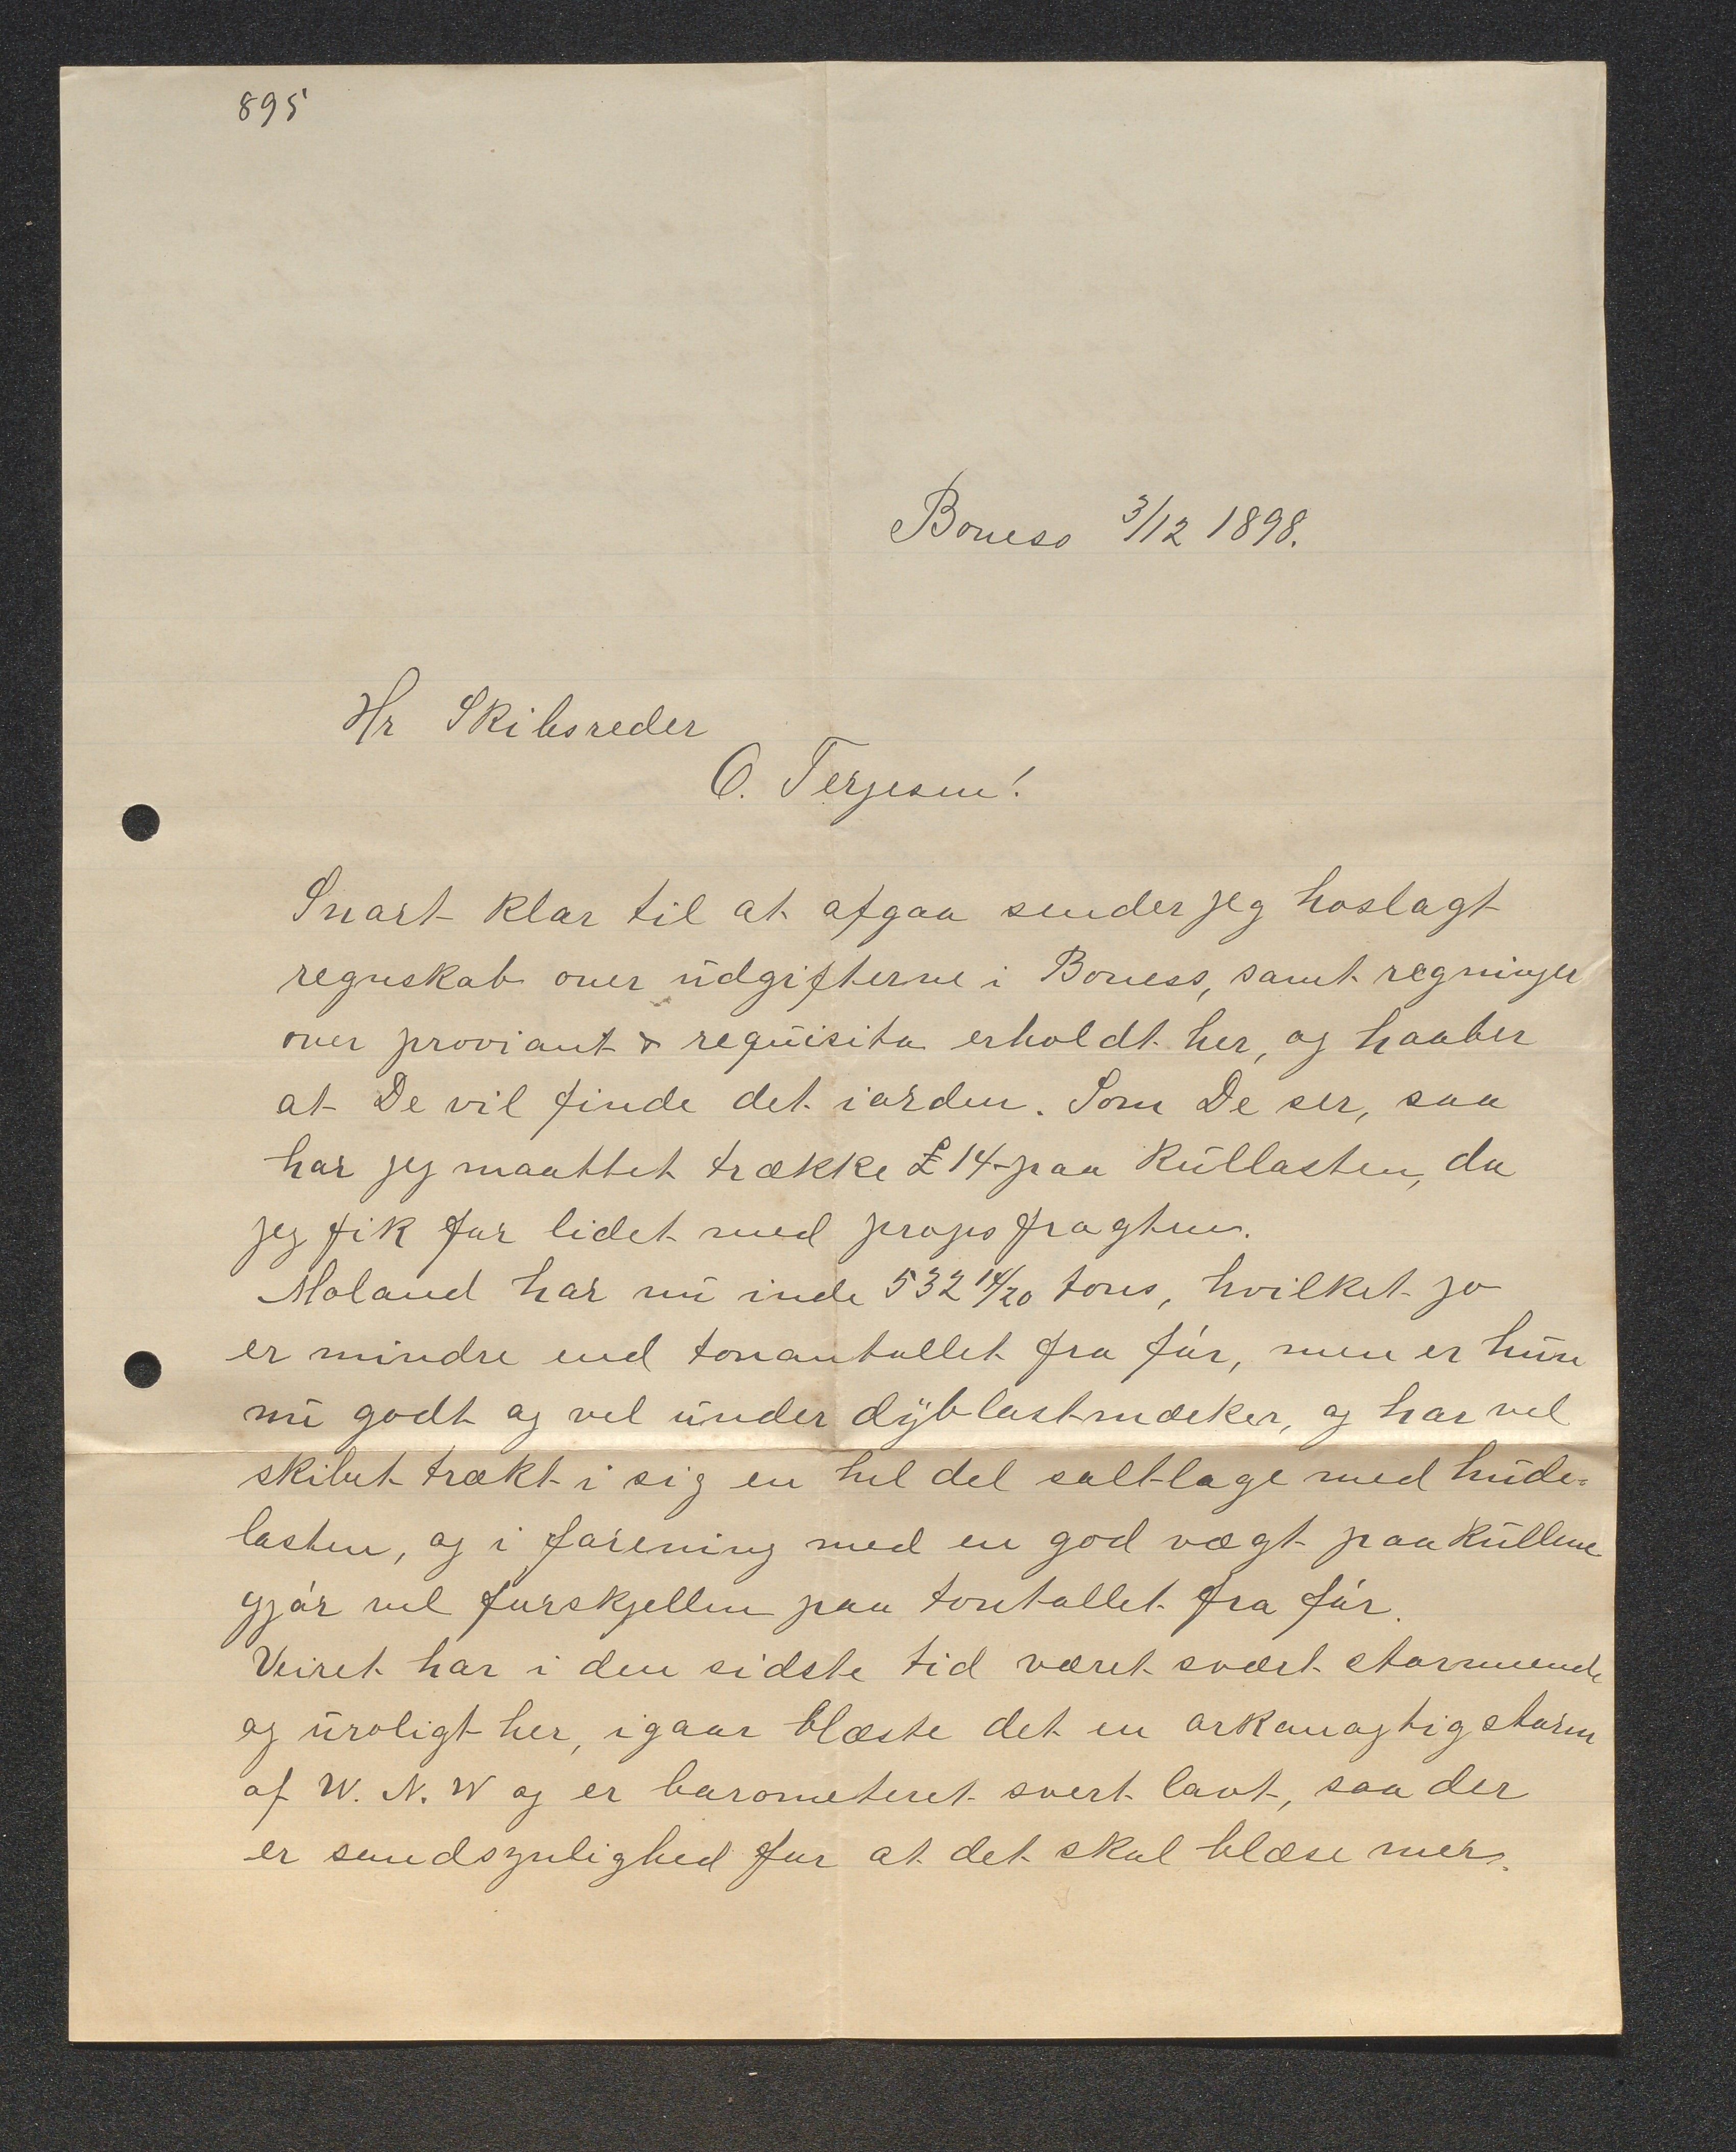 895
Boness 3/12 1898.
Hr Skibsreder
O. Terjesen!
Snart klar til at afgaa sender jeg hoslagt
regnskab over udgifterne i Boness, samt regninger
over proviant & requisita erholdt her, og haaber
at De vil finde det iorden. Som De ser, saa
har jeg maattet trække £14- paa kullasten, da
jeg fik for lidet med propsfragten.
Moland har nu inde 532 14/20 tons, hvilket jo
er mindre end tonantallet fra før, men er hun
nu godt og vel under dyblastmærker, og har vel
skibet trækt i sig en hel del saltlage med hude-
lasten, og i forening med en god vægt paa kullene
gjør vel forskjellen paa tontallet fra før.
Veiret har i den sidste tid været svært stormende
og uroligt her, igaar blæste det en orkanagtig storm
af W. N. W og er barometeret svert lavt, saa der
er sandsynlighed for at det skal blæse mer.